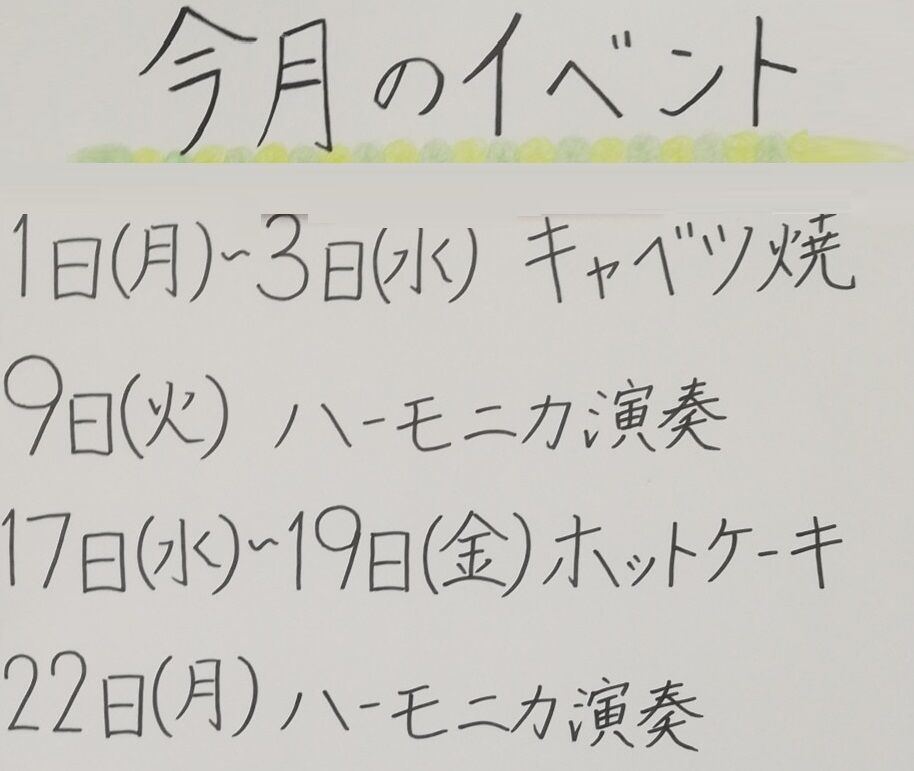 今月のイベント
1日(月)~3日(水) キャベツ焼
9日(火) ハーモニカ演奏
17日(水)~19日(金)ホットケーキ
22日(月)ハーモニカ演奏